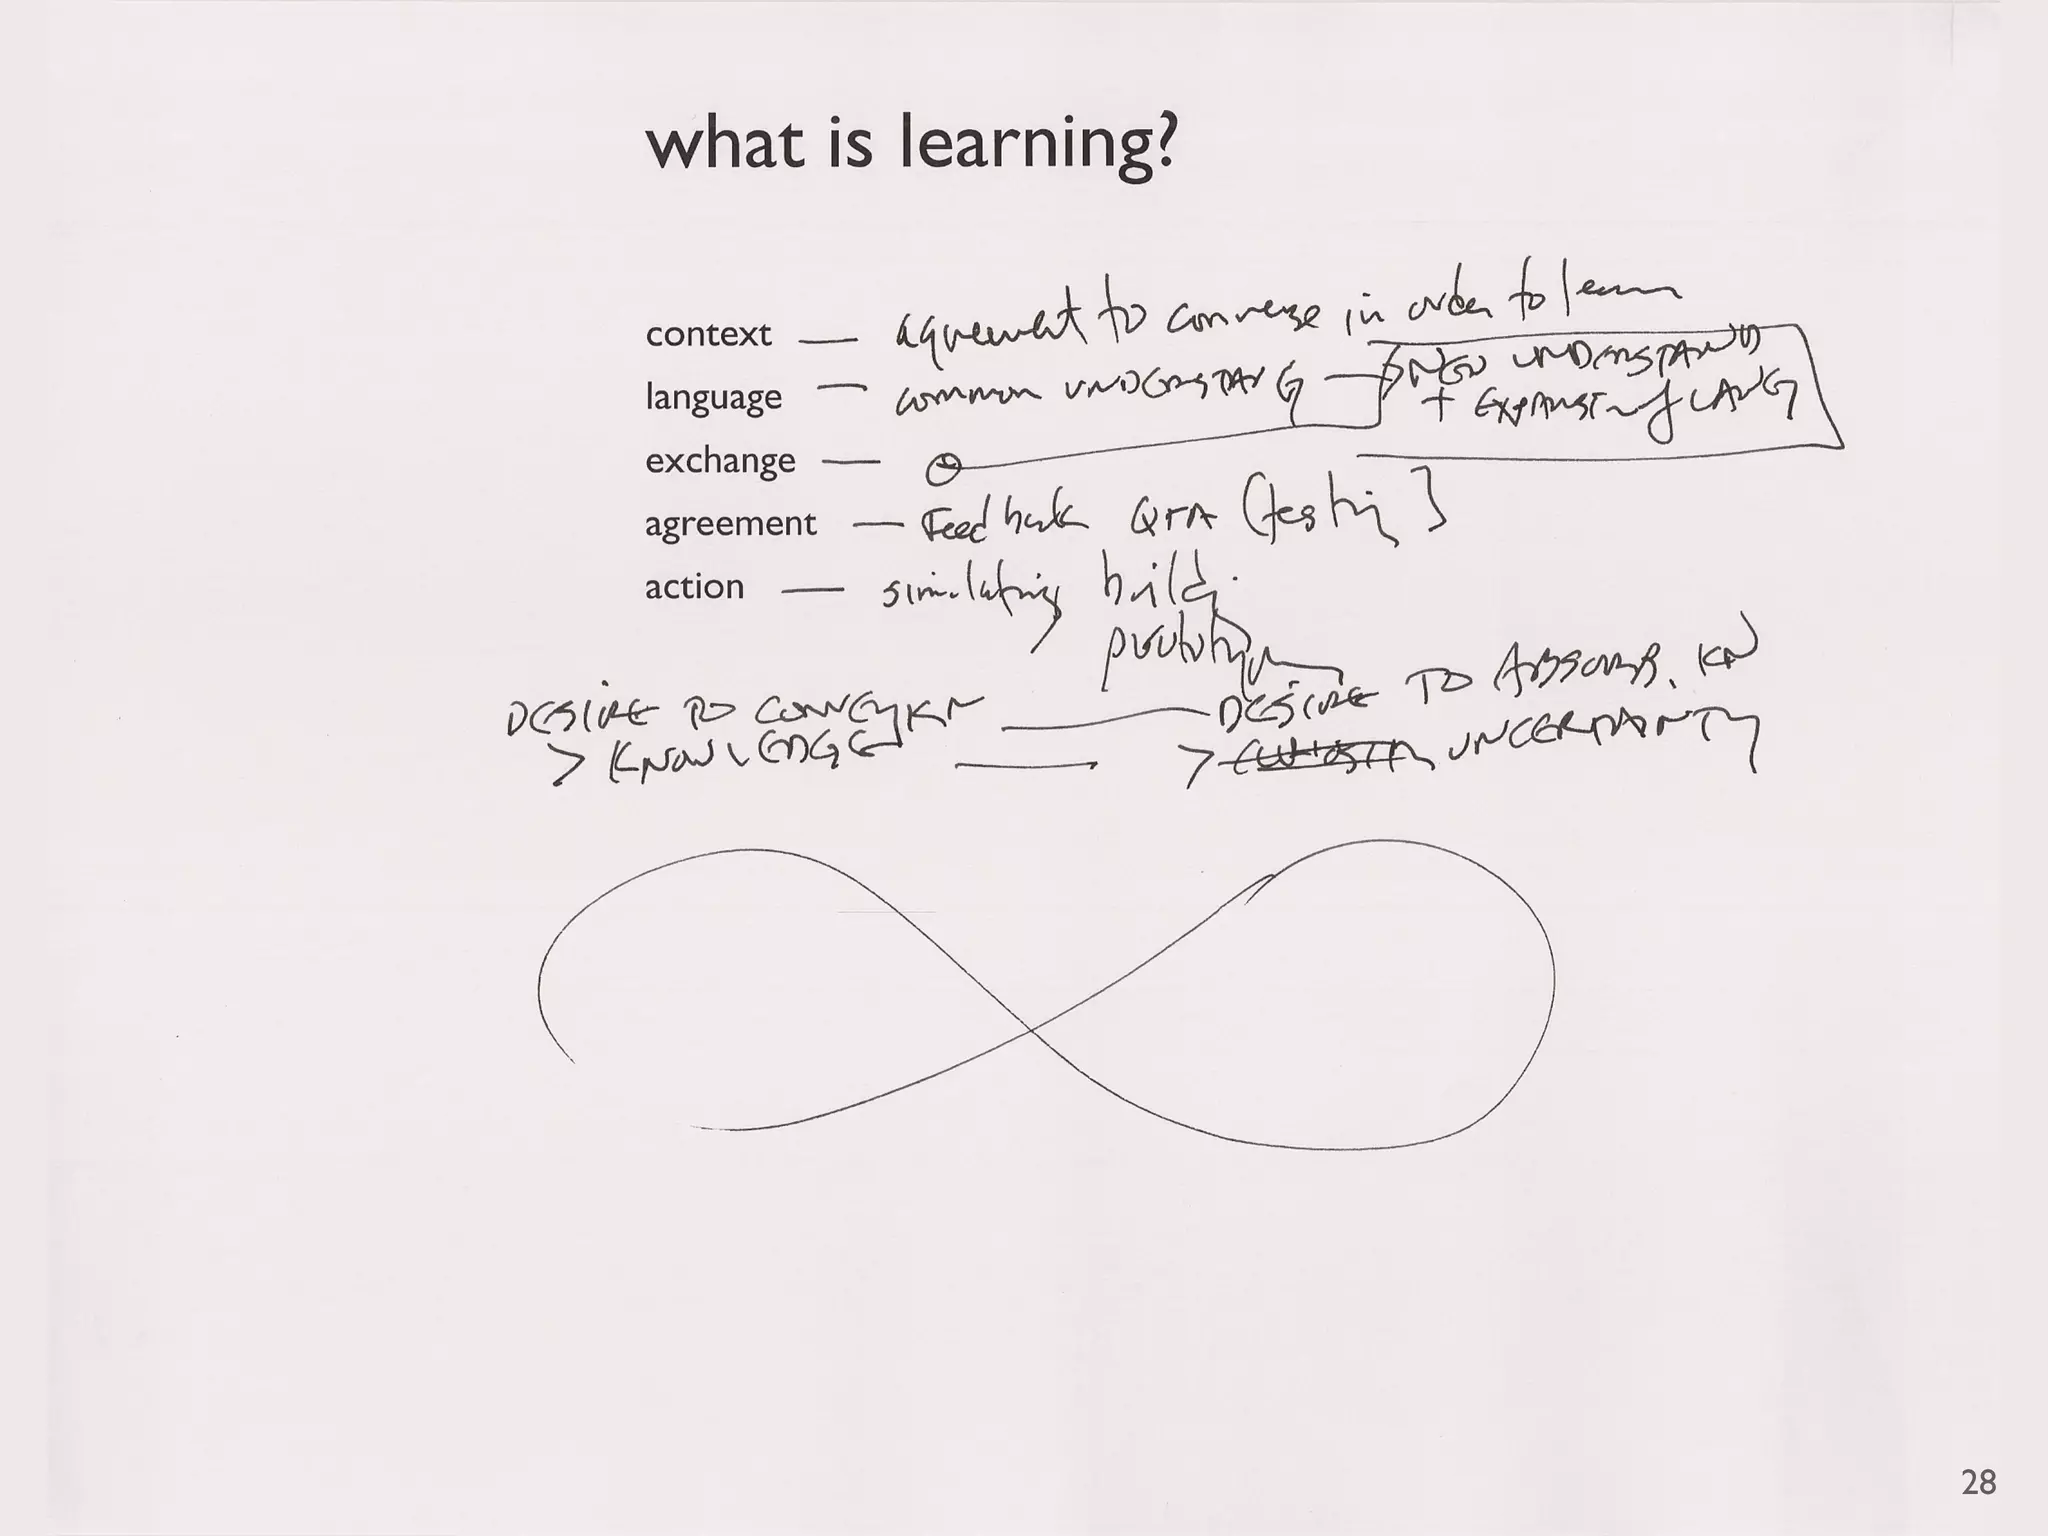 what is learning?
context — agreement to converse in order to learn
language — common UNDERSTANG → NEW UNDERSTAND
+ EXPANSION of LANG
exchange —
agreement — Feedback Q+A (testing]
action — simulating build
prototype
DESIRE TO CONVEY KN — DESIRE TO ABSORB. KN
> KNOWLEDGE — > UNCERTAINTY
28